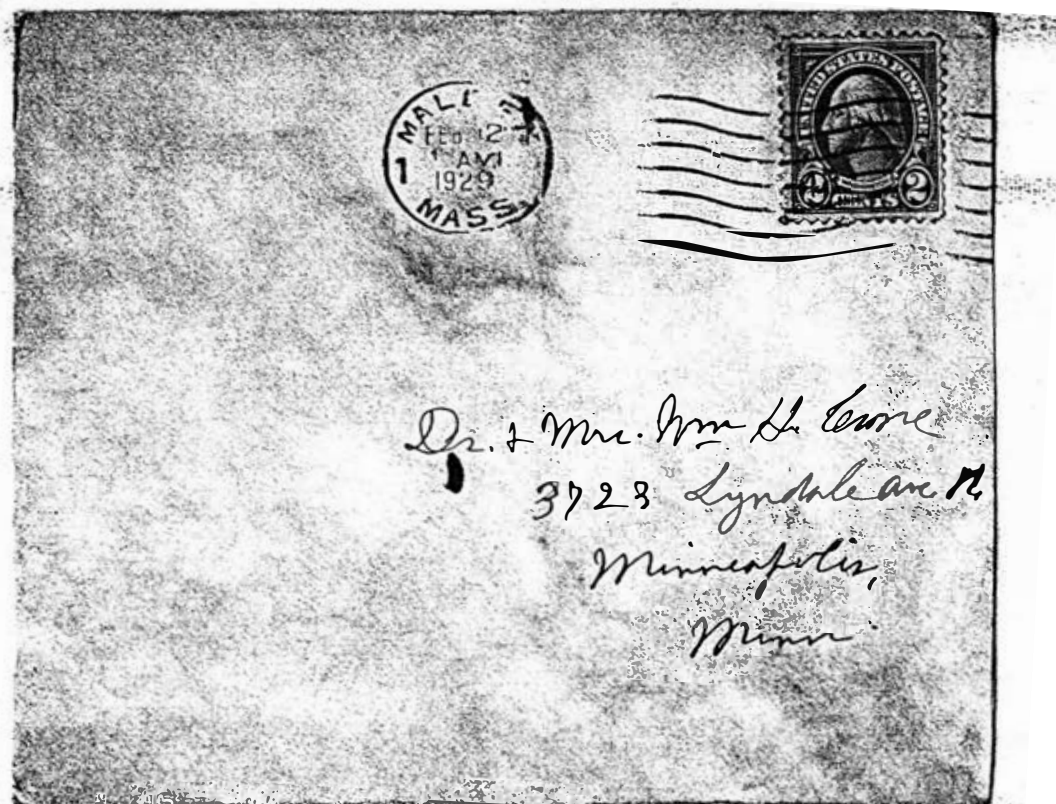 MALDEN
FEB 12
AM
1
1929
MASS.
UNITED STATES POSTAGE
2 CENTS 2
Dr. & Mrs. Wm H. Crone
3723 Lyndale Ave. N.
Minneapolis,
Minn